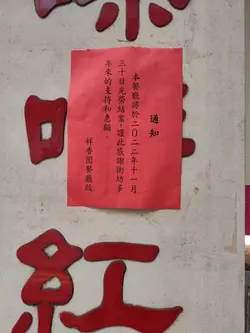 通知
本餐廳謹於二〇二二年十一月
三十日光榮結業，謹此感謝街坊多
年來的支持和惠顧。
祥香園餐廳啟
紅